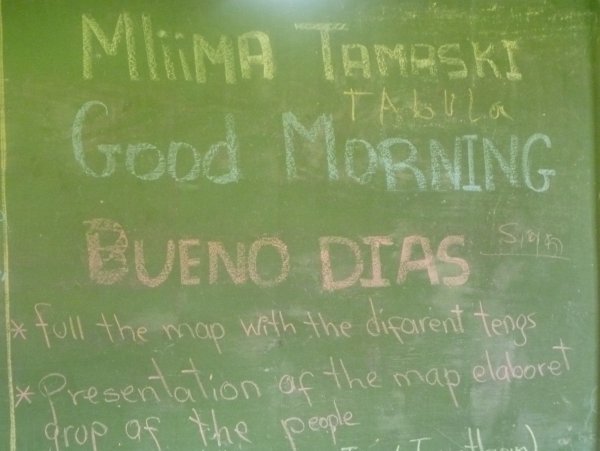 MliiMA TAMASKI
TAbUla
GooD MORNING
BUENO DIAS
* full the map with the difarent tengs
* Presentation of the map elaboret
grup of the people